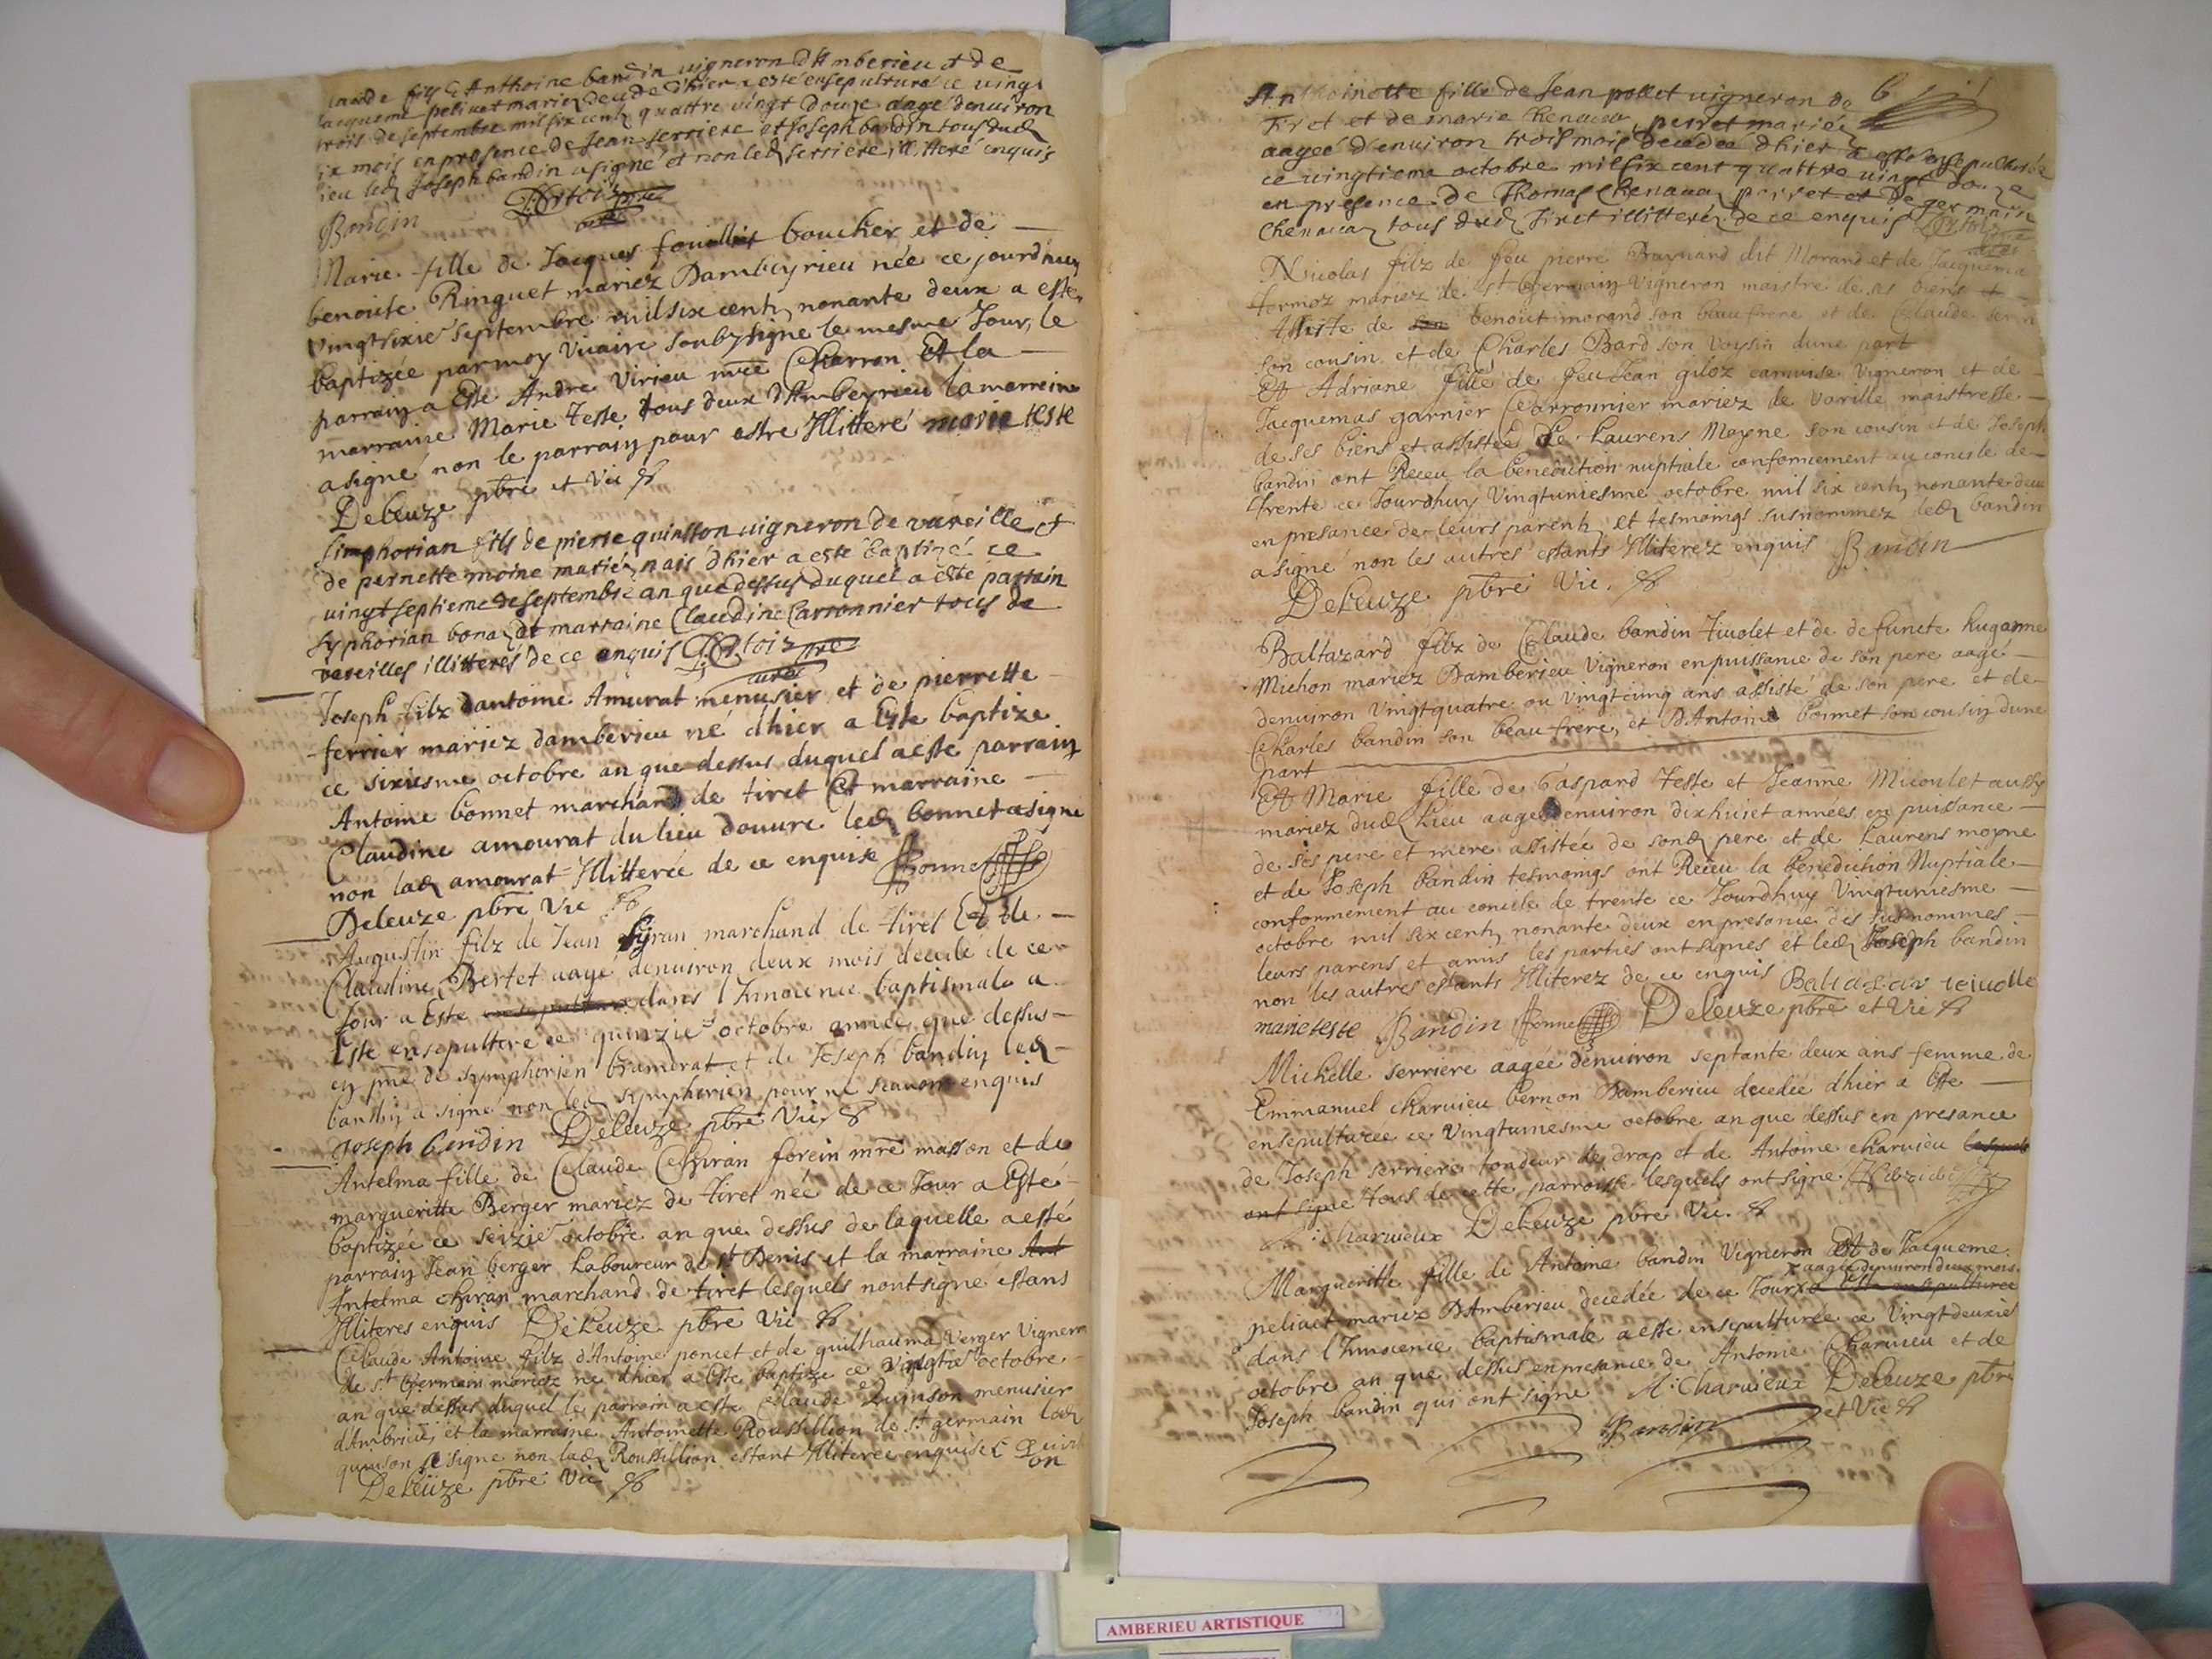 laude fils d'Anthoine bandin vigneron d'Amberieu et de
Jacqueme peliuet mariez decedé d'hier a esté ensepulturé ce vingt
trois de septembre mil six centz quattre vingt douze aagé denuiron
six mois en presence de Jean serriere et Joseph bandin tous dud
lieu led Joseph bandin a signé et non led serriere illiteré enquis
Bandin
Marie fille de Jacques fouillet boucher et de
benoite Ringuet mariez Dambeyrieu née ce jourdhuy
vingtsixie septembre mil six centz nonante deux a esté
baptizée par moy vicaire soubzsigne le mesme Jour, le
parrain a Esté Andre Virieu mre Charron Et la
marraine Marie Teste tous deux d'Ambeyrieu la marreine
a signé non le parrain pour estre Illitteré marie teste
Deleuze pbre et Vic
simphorian fils de pierre quinsson uigneron de vareille et
de pernette moine mariez nais d'hier a esté baptizé ce
uingt septieme de septembre an que dessus duquel a esté parrain
syphorian bona et marraine Claudine Carronnier tous de
vareilles illitterés de ce enquis
pre
curé
Joseph filz dantoine Amurat menusier et de pierrette
ferrier mariez damberieu né d'hier a Esté baptize
ce sixiesme octobre an que dessus duquel a esté parrain
Antoine bonnet marchand de tiret Et marraine
Claudine amourat du lieu douure led bonnet a signe
non lad amourat Illitterée de ce enquise Bonnet
Deleuze pbre Vic
Augustin filz de Jean syran marchand de tiret Et de
Claudine Bertet aagé denuiron deux mois decede de ce
Jour a Esté dans l'Innocence baptismale a
Este ensepulteré ce quinzie octobre année que dessus
en pnce de symphorien bramerat et de Joseph bandin led
bandin a signé non led symphorien pour ne scauoir enquis
Joseph bandin Deleuze pbre Vic
Antelma fille de Claude Chiran forein mre masson et de
margueritte Berger mariez de tiret née de ce Jour a Esté
baptizée ce seizie octobre an que dessus de laquelle a esté
parrain Jean berger Laboureur de st Denis et la marraine
Antelma chiran marchand de tiret lesquels nont signe estans
Illiteres enquis Deleuze pbre Vic
Claude Antoine filz d'Antoine poncet et de guilhauma Verger Vigneron
de st Germain mariez né d'hier a Esté baptize ce vingtie octobre
an que dessus duquel le parrain a esté Claude Quinson menusier
d'Ambrieu, et la marraine Antoinette Roussillion de st germain led
quinson a signe non lad Roussillion estant Illiteree enquise C Quins
on
Deleuze pbre Vic
Anthoinette fille de Jean pollet uigneron de 6
Tiret et de marie Chenauaz perret mariéz
aageé d'enuiron trois mois decedeé dhier a esté ensepulturée
ce uingtieme octobre mil six cent quattre uingt douze
en presence de Thomas Chenauaz perret et de germain
Chenauaz tous dud Tiret illitterez de ce enquis
Nicolas filz de feu pierre Braynard dit Morand et de Jacquema
termoz mariez de st Germain Vigneron maistre de ses biens et
Assisté de son benoit morand son beau frere et de Claude
son cousin et de Charles Bard son Voysin dune part
Et Adriane fille de feu Jean giloz camuise Vigneron et de
Jacquemas garnier Charronnier mariez de Varille maistresse
de ses biens et assistée de Laurens Moyne son cousin et de Joseph
bandin ont Receu la benediction nuptiale conformement au concile de
Trente ce Jourdhuy Vingtuniesme octobre mil six centz nonante deux
en presance de leurs parentz et tesmoings susnommez led bandin
a signé non les autres estants Illiterez enquis Bandin
Deleuze pbre Vic.
Baltazard filz de Claude bandin Tiuolet et de defuncte huganne
Michon mariez Damberieu Vigneron en puissance de son pere aagé
denuiron Vingtquatre ou Vingtcinq ans assisté de son pere et de
Charles bandin son beau frere, et D'Antoine bonnet son cousin dune
part
Et Marie fille de Gaspard Teste et Jeanne Micoulet aussy
mariez dud Lieu aagée denuiron dixhuict années en puissance
de ses pere et mere assistée de sond pere et de Laurens moyne
et de Joseph bandin tesmoings ont Receu la benediction Nuptiale
conformement au concile de trente ce Jourdhuy Vingtuniesme
octobre mil six centz nonante deux en presance des susnommes
leurs parens et amis les parties ont signés et led Joseph bandin
non les autres estants Illiterez de ce enquis Baltazar teiuolle
marie teste Bandin Bonnet Deleuze pbre et Vic
Michelle serriere aagée denuiron septante deux ans femme de
Emmanuel charuieu bernon Damberieu decedée dhier a Esté
ensepulturée ce Vingtuniesme octobre an que dessus en presance
de Joseph serriere tondeur de drap et de Antoine charuieu lesquels
ont signe tous de cette parroisse lesquels ont signé
A: charuieux Deleuze pbre Vic.
Margueritte fille de Antoine bandin Vigneron Et de Jacqueme
x aagée denuiron deux mois
peliact mariez D'Amberieu decedée de ce Jour x a Este ensepulturee
dans l'Innocence baptismale a esté ensepulturée ce Vingtdeuxie
octobre an que dessus en presance de Antoine Charuieu et de
Joseph bandin qui ont signe A: Charuieux Deleuze pbre
Bandin et Vic
AMBERIEU ARTISTIQUE